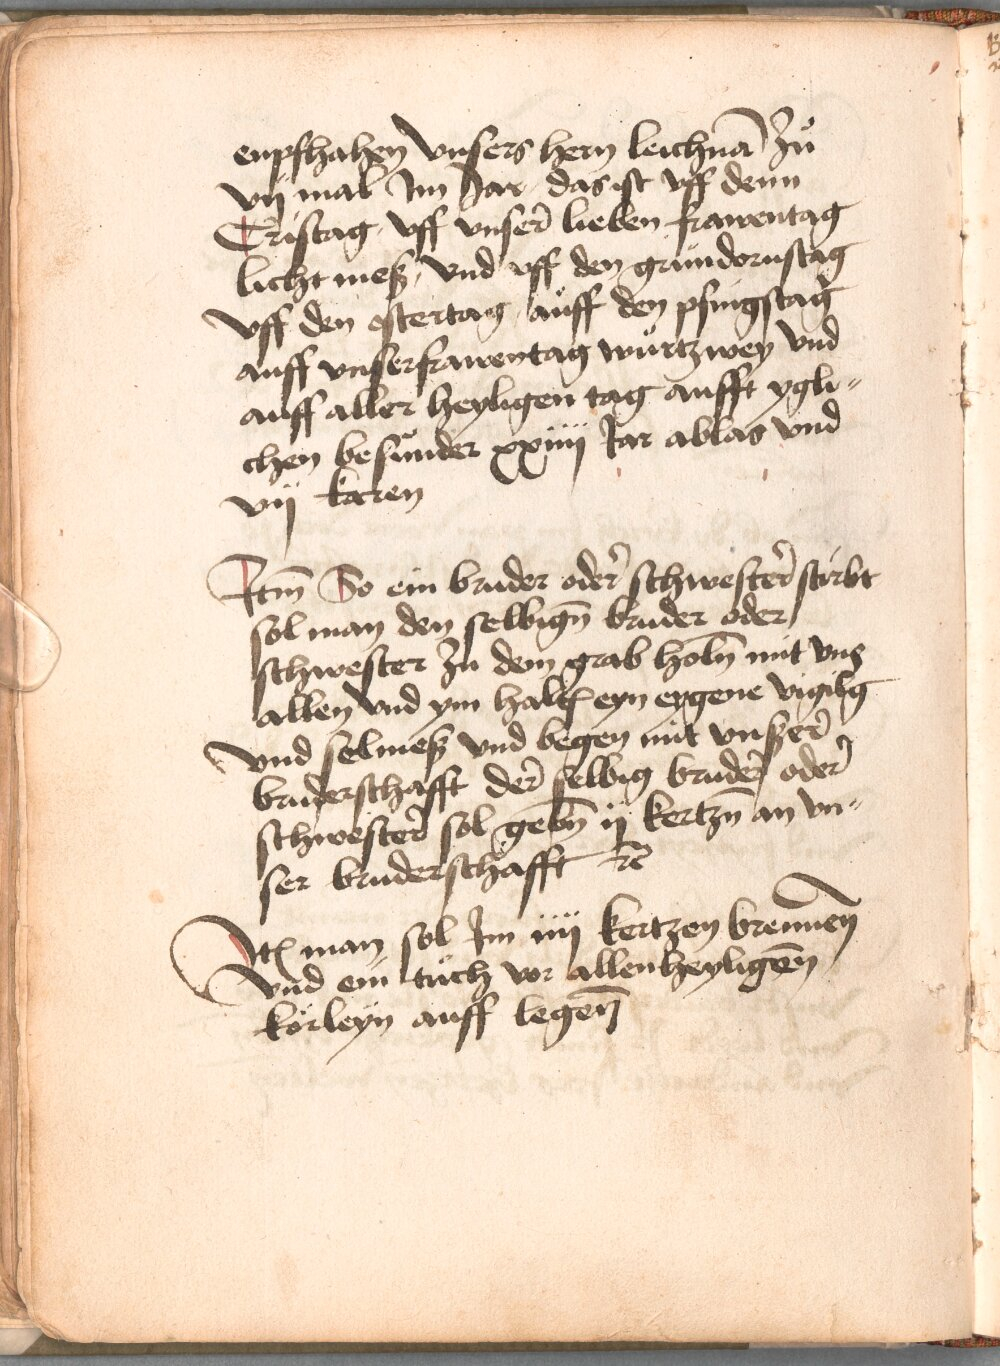 enpfhahen vnsers hern leichnā Zů
vij mal Im Jar das ist vff denn
Cristag vff vnser lieben frawentag
licht meß vnd vff den gründornstag
vff den ostertag aŭff den pfingstag
auff vnserfrawentag würtzwey vnd
auff aller heyligen tag aufft ygli⸗
chen besůnder xxiiij Jar ablas vnd
vij karen
Itm̄ So ein bruder oder schwester stirbt
sol man den selbign̄ bruder oder
schwester Zu dem grab holn̄ mit vns
allen vnd ym halt eyn eygene vigilg
vnd selmeß vnd begen mit vnßer
bruderschafft der selbig bruder oder
schwester sol gebn̄ ij kertzn̄ an vn⸗
ser bruderschafft ꝛc̄
It man sol Im iiij kertzen brennen̄
vnd ein tůch vor allenheyligen̄
körleyn auff legen̄